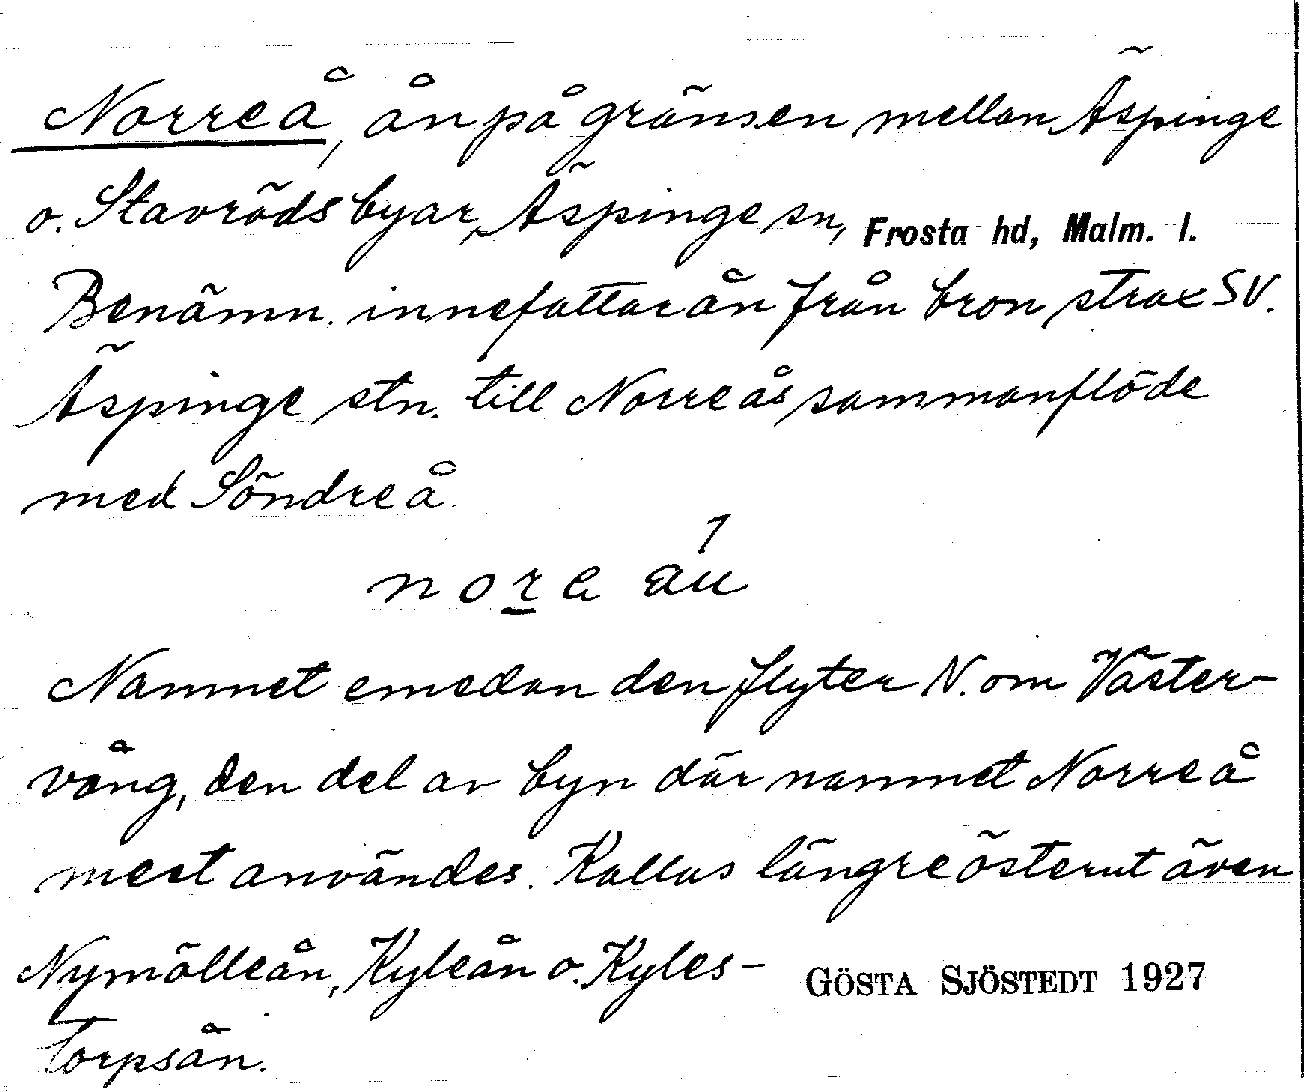 Norreå, ån på gränsen mellan Äspinge
o. Stavröds byar, Äspinge sn, Frosta hd, Malm. l.
Benämn. innefattar ån från bron strax SV.
Äspinge stn. till Norreås sammanflöde
med Söndreå.
nore au
Namnet emedan den flyter N. om Väster-
vång, den del av byn där namnet Norreå
mest användes. Kallas längre österut även
Nymölleån, Kyleån o. Kyles-
torpsån.
GÖSTA SJÖSTEDT 1927